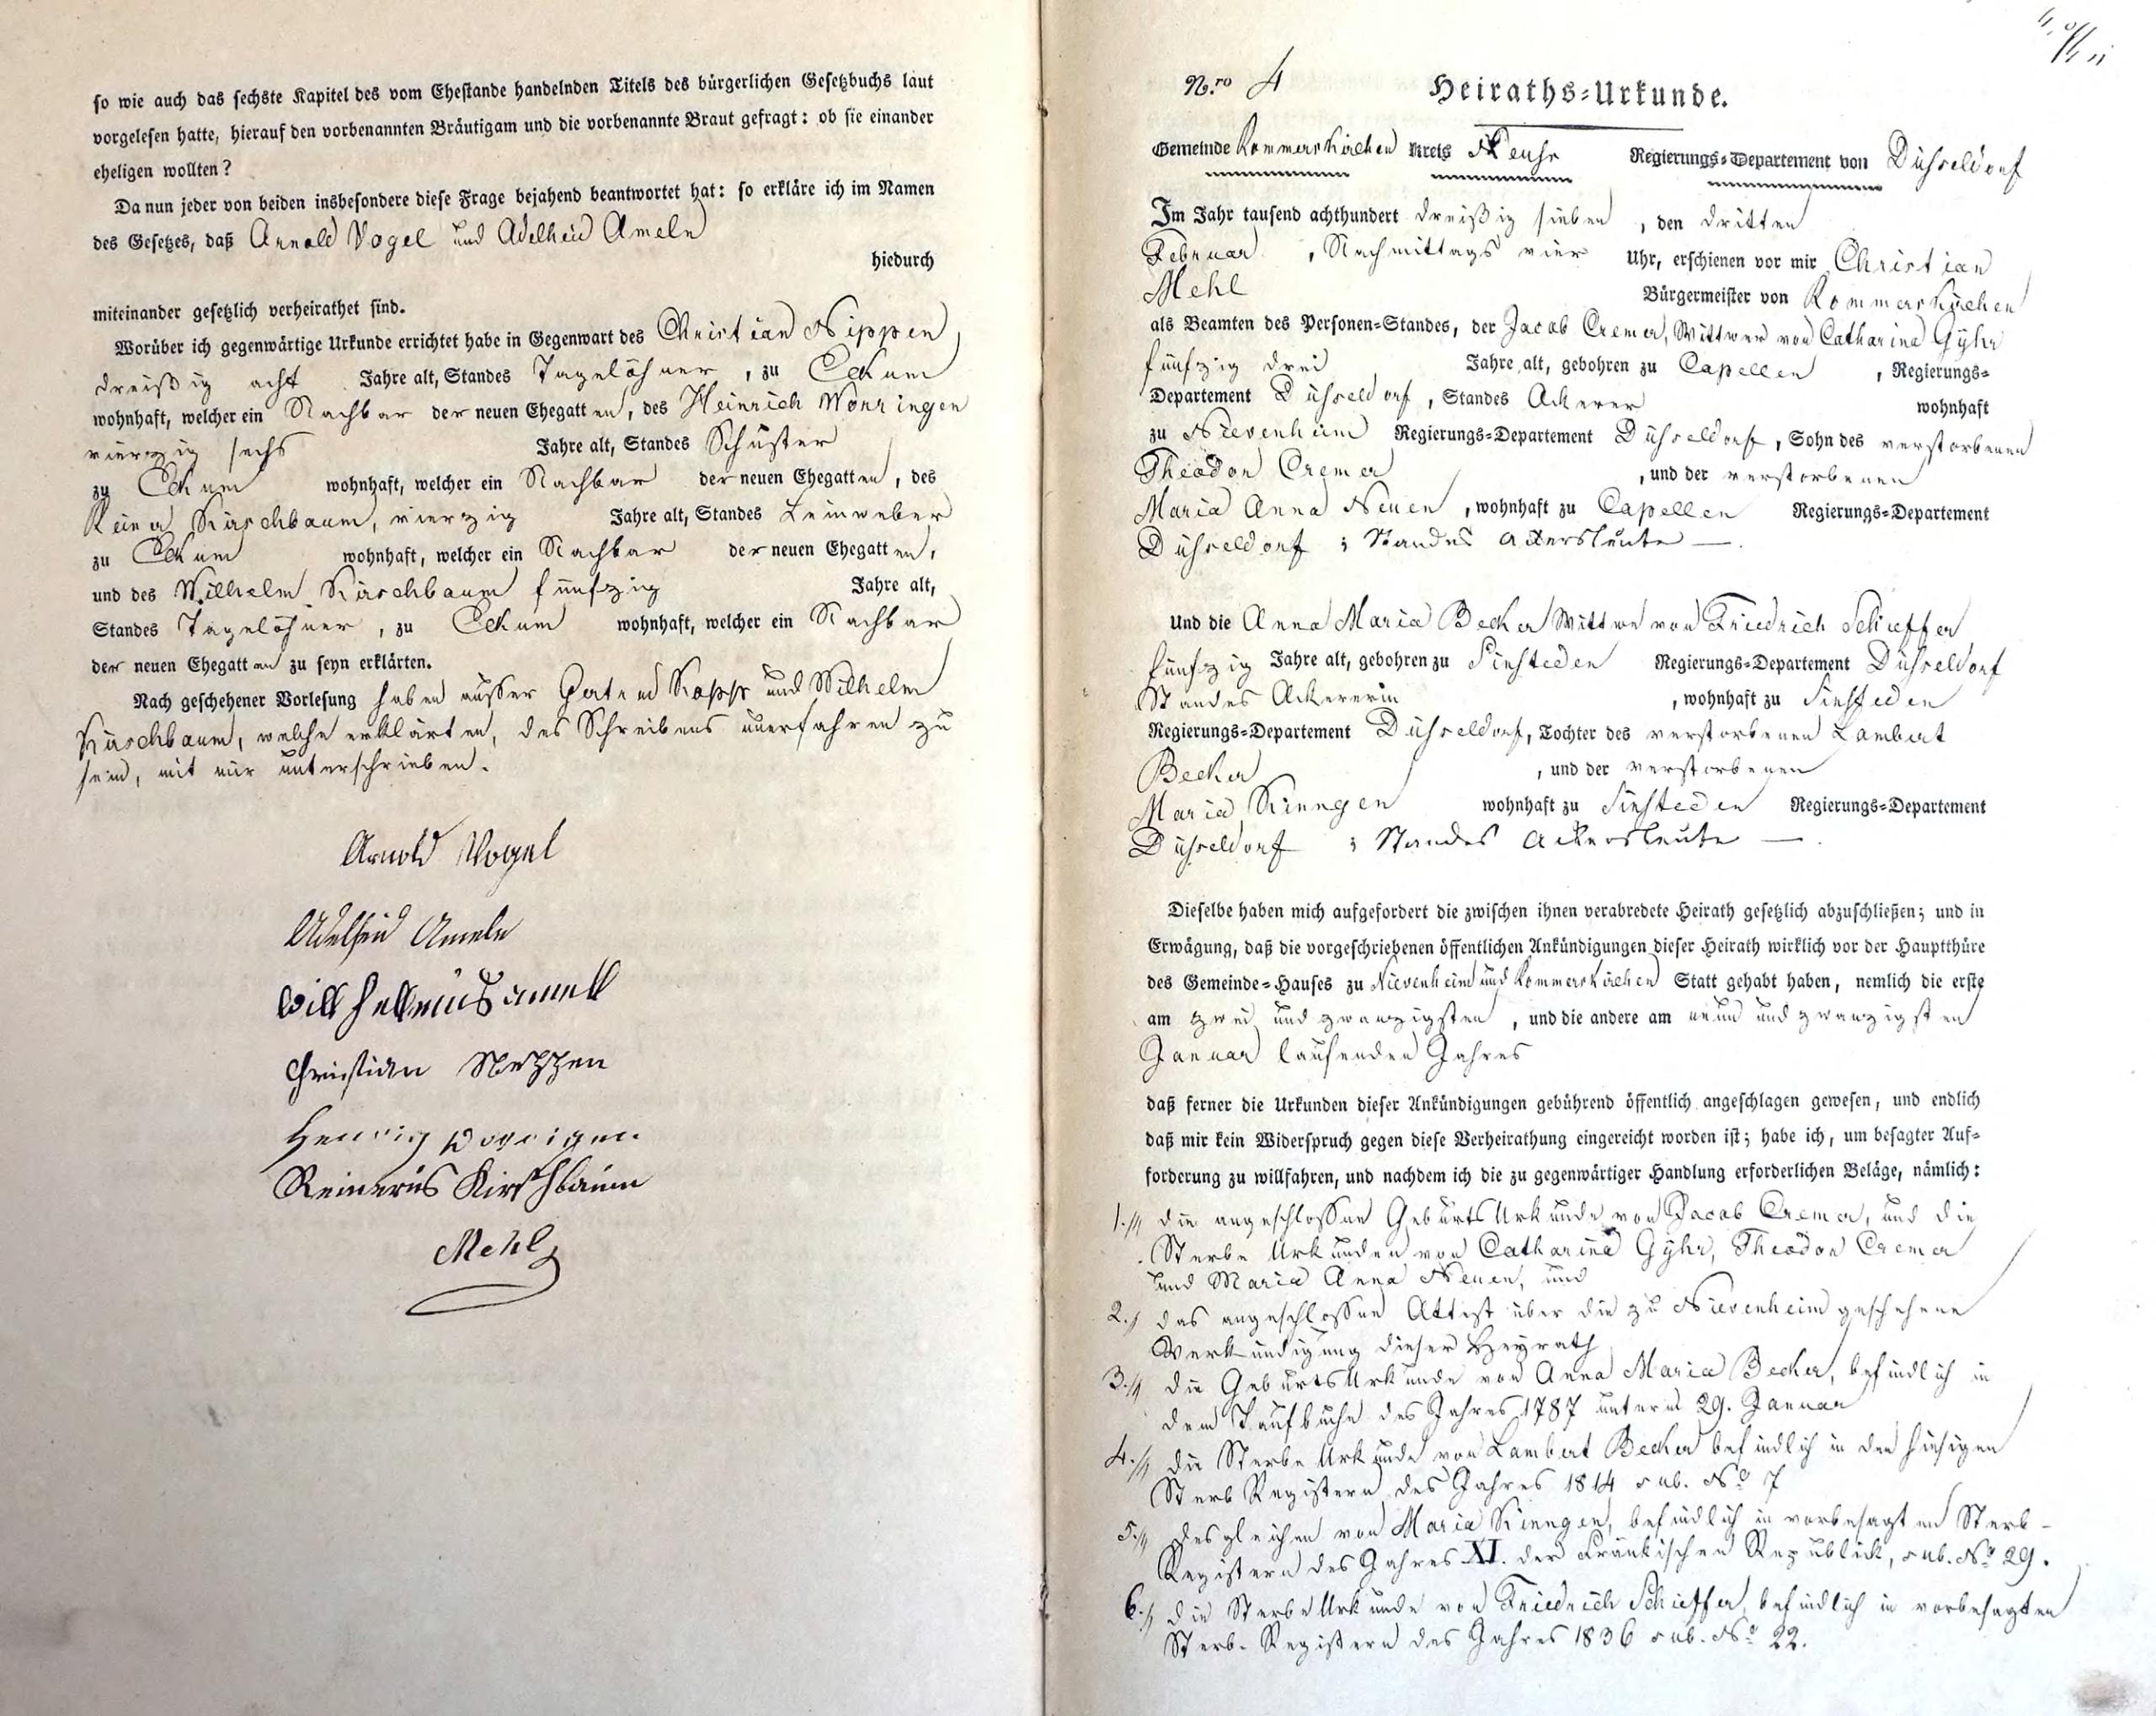 so wie auch das sechste Kapitel des vom Ehestande handelnden Titels des bürgerlichen Gesetzbuchs laut
vorgelesen hatte, hierauf den vorbenannten Bräutigam und die vorbenannte Braut gefragt: ob sie einander
eheligen wollten?
Da nun jeder von beiden insbesondere diese Frage bejahend beantwortet hat: so erkläre ich im Namen
des Gesetzes, daß Arnold Vogel und Adelheid Ameln
hiedurch
miteinander gesetzlich verheirathet sind.
Worüber ich gegenwärtige Urkunde errichtet habe in Gegenwart des Christian Nippen
dreißig acht Jahre alt, Standes Tagelöhner, zu Eckum
wohnhaft, welcher ein Nachbar der neuen Ehegatten, des Heinrich Worringen
vierzig sechs Jahre alt, Standes Schuster
zu Eckum wohnhaft, welcher ein Nachbar der neuen Ehegatten, des
Reiner Kirschbaum, vierzig Jahre alt, Standes Leinweber
zu Eckum wohnhaft, welcher ein Nachbar der neuen Ehegatten,
und des Wilhelm Kirschbaum fünfzig Jahre alt,
Standes Tagelöhner, zu Eckum wohnhaft, welcher ein Nachbar
der neuen Ehegatten zu seyn erklärten.
Nach geschehener Vorlesung haben ausser und Wilhelm
Kirschbaum, welche erklärten, des Schreibens unerfahren zu
sein, mit mir unterschrieben.
Arnold Vogel
Adelheid Ameln
Christian Nippen
Reinerus Kirschbaum
Mehl
Nro 4 Heiraths-Urkunde.
Gemeinde Rommerskirchen Kreis Neuss Regierungs-Departement von Düsseldorf
Im Jahr tausend achthundert dreißig sieben, den dritten
Februar, Nachmittags vier Uhr, erschienen vor mir Christian
Mehl Bürgermeister von Rommerskirchen
als Beamten des Personen-Standes, der Jacob Cremer, Wittwer von Catharina Gyhr
fünfzig drei Jahre alt, gebohren zu Capellen, Regierungs-
Departement Düsseldorf, Standes Ackerer wohnhaft
zu Nievenheim Regierungs-Departement Düsseldorf, Sohn des verstorbenen
Theodor Cremer, und der verstorbenen
Maria Anna Neuen, wohnhaft zu Capellen Regierungs-Departement
Düsseldorf; Standes Ackersleute —.
Und die Anna Maria Becker Wittwe von Friedrich Schieffer
fünfzig Jahre alt, gebohren zu Sinsteden Regierungs-Departement Düsseldorf
Standes Ackererin, wohnhaft zu Sinsteden
Regierungs-Departement Düsseldorf, Tochter des verstorbenen Lambert
Becker, und der verstorbenen
Maria Kinngen wohnhaft zu Sinsteden Regierungs-Departement
Düsseldorf; Standes Ackersleute —.
Dieselbe haben mich aufgefordert die zwischen ihnen verabredete Heirath gesetzlich abzuschließen; und in
Erwägung, daß die vorgeschriebenen öffentlichen Ankündigungen dieser Heirath wirklich vor der Hauptthüre
des Gemeinde-Hauses zu Nievenheim und Rommerskirchen Statt gehabt haben, nemlich die erste
am zwei und zwanzigsten, und die andere am neun und zwanzigsten
Januar laufenden Jahres
daß ferner die Urkunden dieser Ankündigungen gebührend öffentlich angeschlagen gewesen, und endlich
daß mir kein Widerspruch gegen diese Verheirathung eingereicht worden ist; habe ich, um besagter Auf-
forderung zu willfahren, und nachdem ich die zu gegenwärtiger Handlung erforderlichen Beläge, nämlich:
1. die angeschlossene Geburts Urkunde von Jacob Cremer, und die
Sterbe Urkunden von Catharina Gyhr, Theodor Cremer
und Maria Anna Neuen, und
2. das angeschlossene Attest über die zu Nievenheim geschehene
Verkündigung dieser Heyrath
3. die Geburts Urkunde von Anna Maria Becker, befindlich in
dem Taufbuche des Jahres 1787 unterm 29. Januar
4. die Sterbe Urkunde von Lambert Becker befindlich in den hiesigen
Sterb Registern des Jahres 1814 sub. No 7
5. desgleichen von Maria Kinngen, befindlich in vorbesagten Sterb-
Registern des Jahres XI. der Fränkischen Republick, sub. No 29.
6. die Sterbe Urkunde von Friedrich Schieffer, befindlich in vorbesagten
Sterb-Registern des Jahres 1836 sub. No 22.